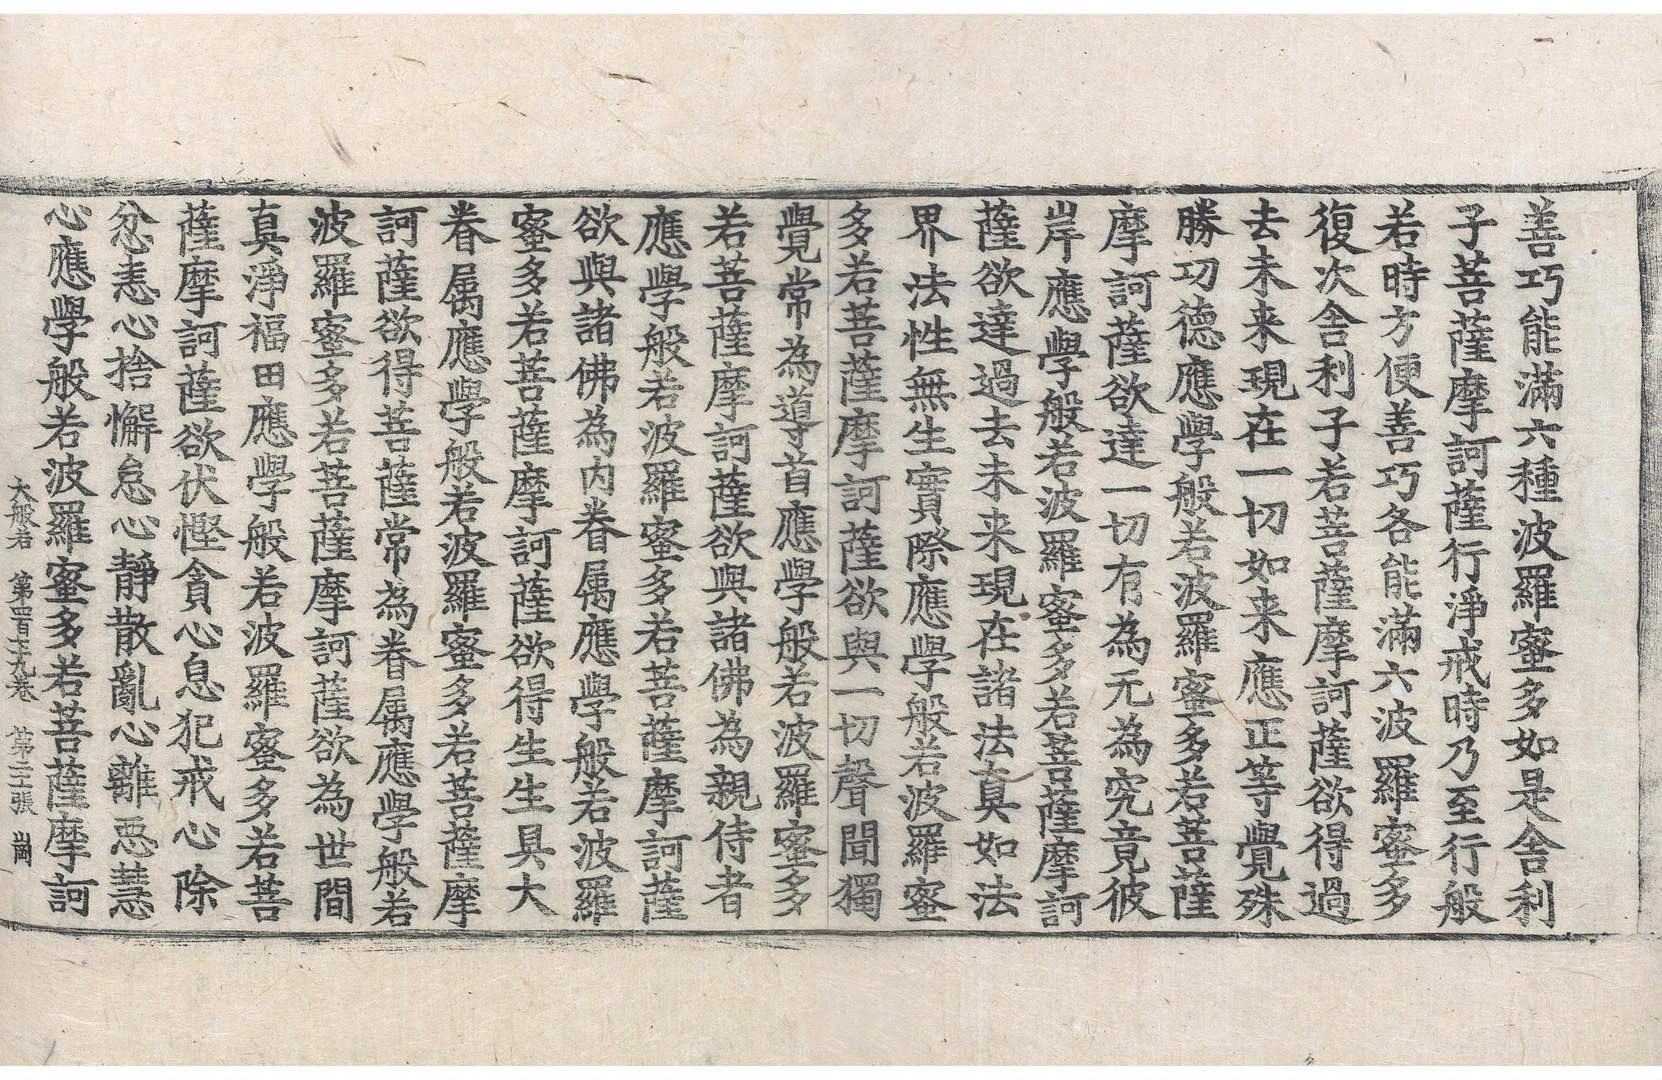 善巧能滿六種波羅蜜多如是舍利
子菩薩摩訶薩行淨戒時乃至行般
若時方便善巧各能滿六波羅蜜多
復次舍利子若菩薩摩訶薩欲得過
去未来現在一切如来應正等覺殊
勝功德應學般若波羅蜜多若菩薩
摩訶薩欲達一切有為无為究竟彼
岸應學般若波羅蜜多若菩薩摩訶
薩欲達過去未来現在諸法真如法
界法性無生實際應學般若波羅蜜
多若菩薩摩訶薩欲與一切聲聞獨
覺常為導首應學般若波羅蜜多
若菩薩摩訶薩欲與諸佛為親侍者
應學般若波羅蜜多若菩薩摩訶薩
欲與諸佛為内眷属應學般若波羅
蜜多若菩薩摩訶薩欲得生生具大
眷属應學般若波羅蜜多若菩薩摩
訶薩欲得菩薩常為眷属應學般若
波羅蜜多若菩薩摩訶薩欲為世間
真淨福田應學般若波羅蜜多若菩
薩摩訶薩欲伏慳貪心息犯戒心除
忿恚心捨懈怠心靜散亂心離惡慧
心應學般若波羅蜜多若菩薩摩訶
大般若 第四百七十九卷 第二十張 崗